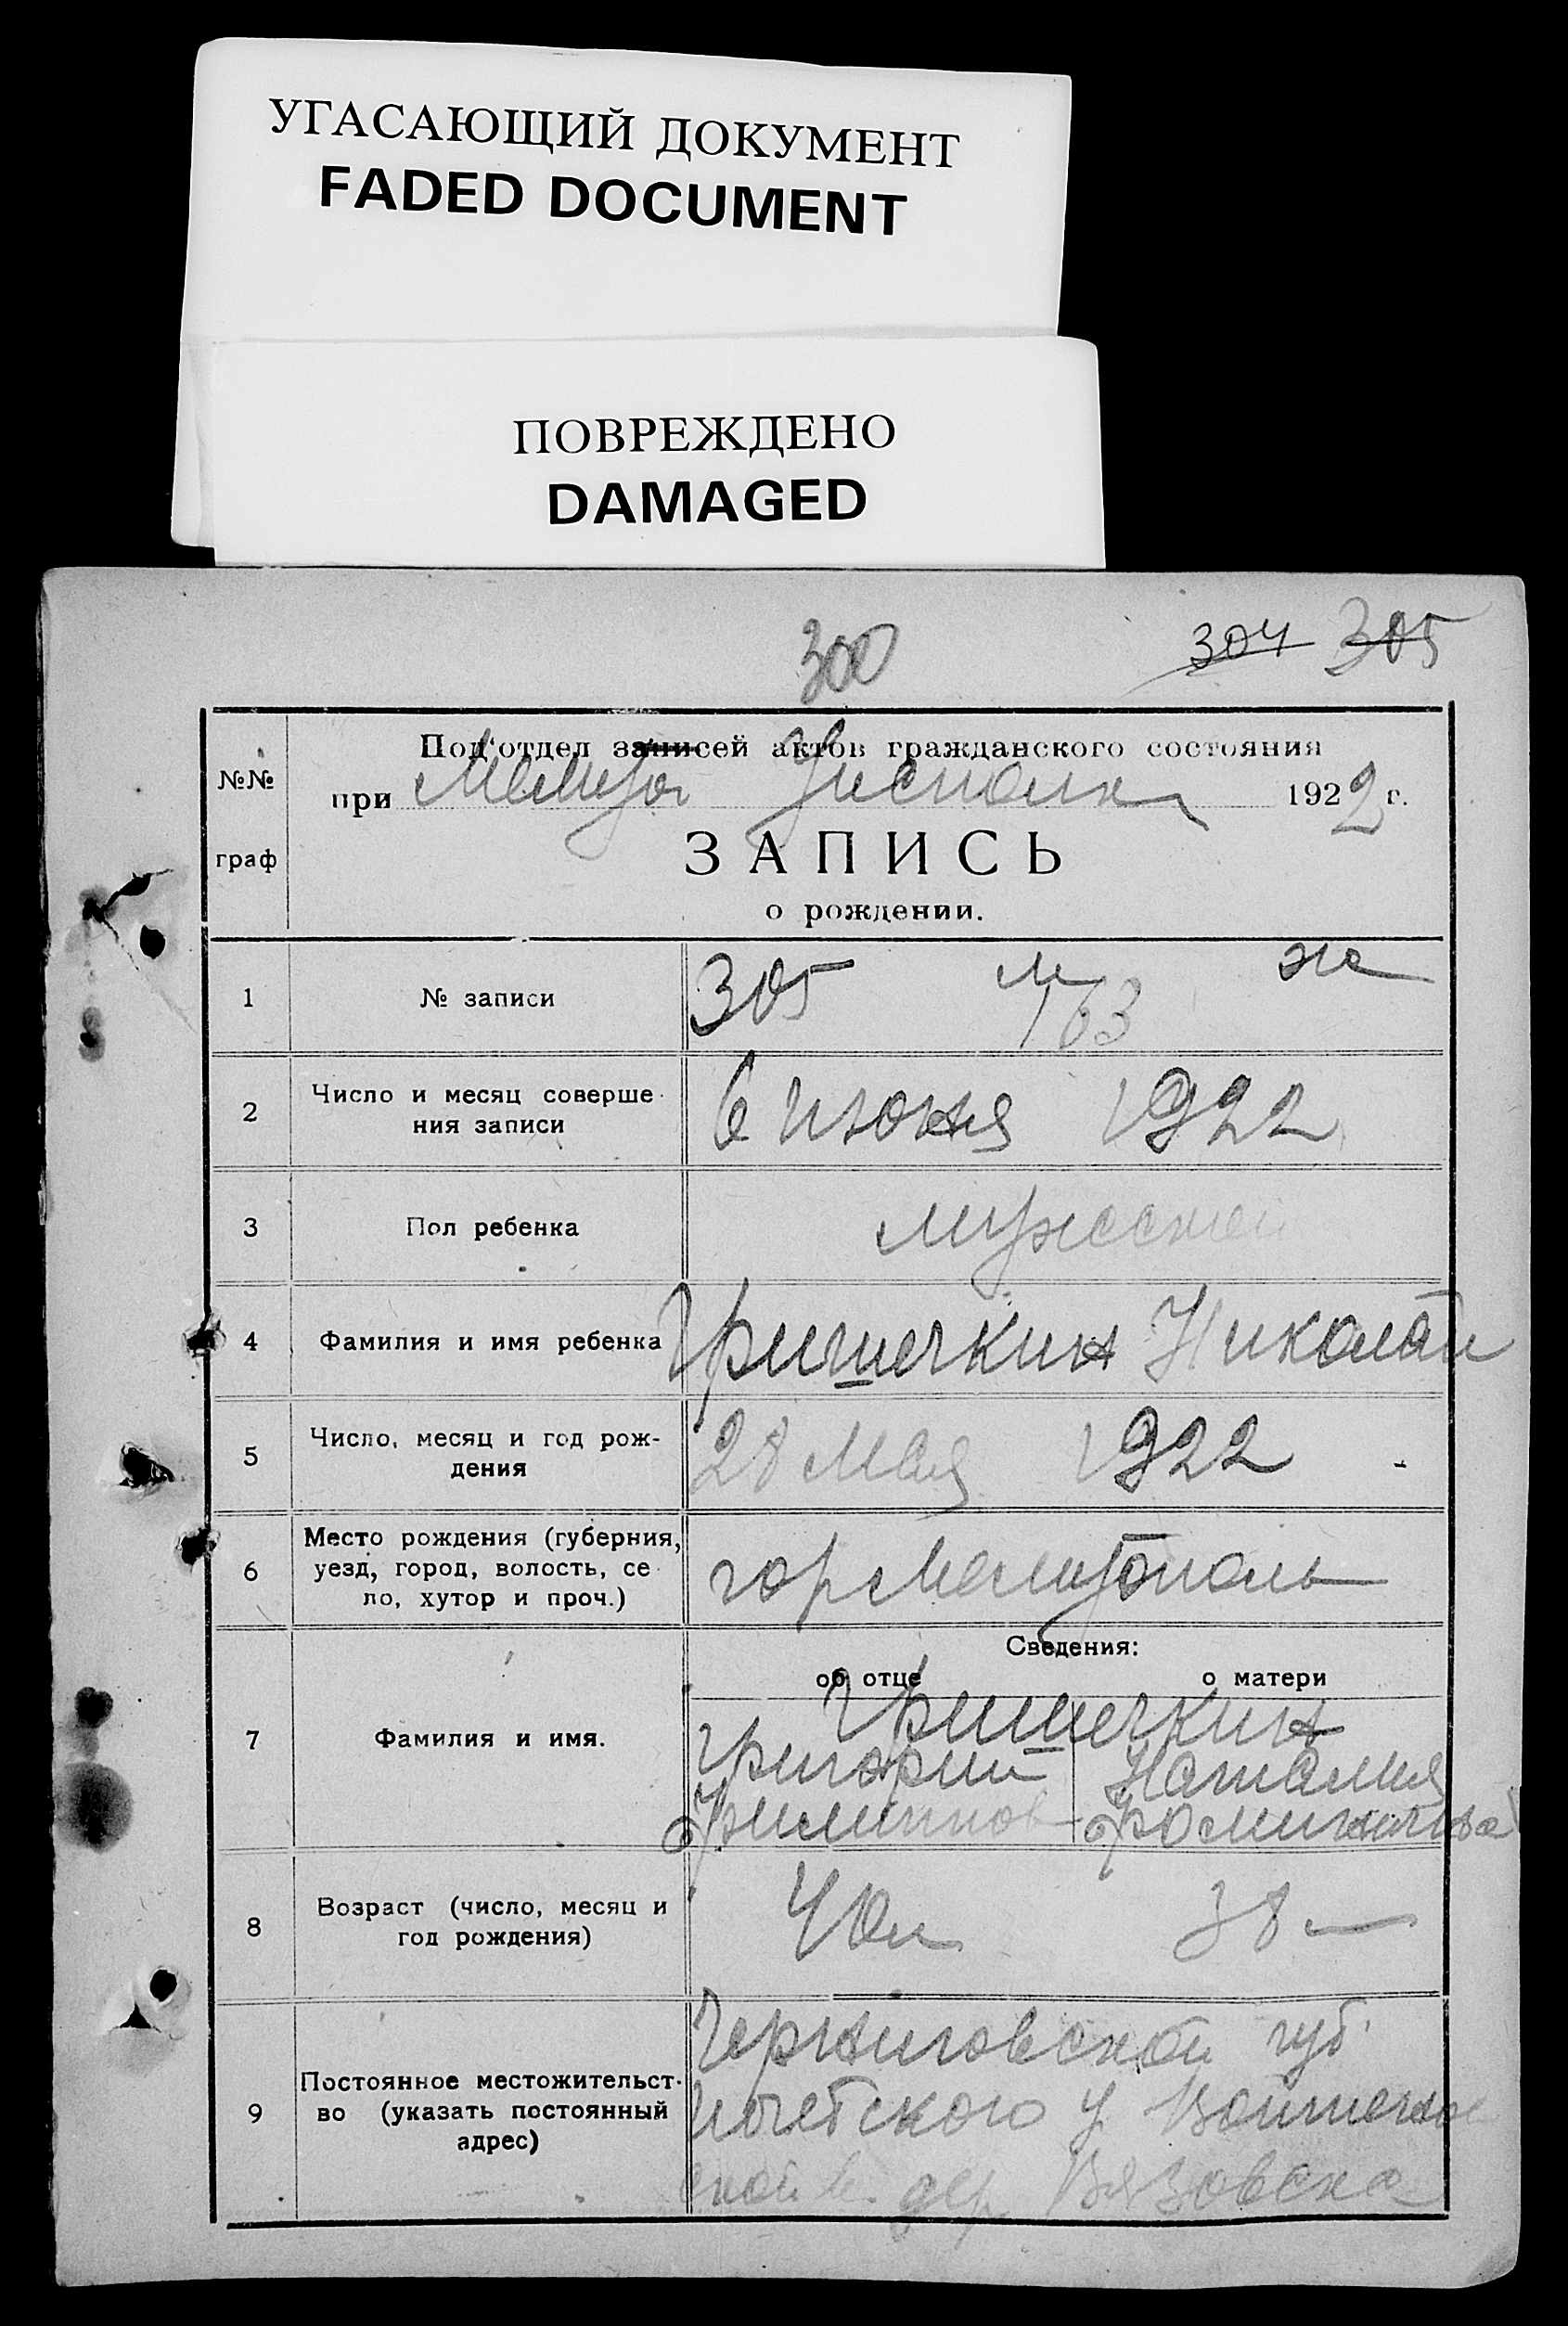 УГАСАЮЩИЙ ДОКУМЕНТ
FADED DOCUMENT
ПОВРЕЖДЕНО
DAMAGED
300 304 305
№№
граф
Под'отдел записей актов гражданского состояния
при 1922 г.
ЗАПИСЬ
о рождении.
1 № записи 305 м 163 ж
2 Число и месяц соверше-
ния записи 6 июня 1922
3 Пол ребенка мужской
4 Фамилия и имя ребенка Гришечкин Николай
5 Число, месяц и год рож-
дения 28 мая 1922
6 Место рождения (губерния,
уезд, город, волость, се-
ло, хутор и проч.) гор Мелитополь
Сведения:
об отце о матери
7 Фамилия и имя. Гришечкин
Григорий Наталия
Филиппов
8 Возраст (число, месяц и
год рождения) 40 л 38 —
9 Постоянное местожительст-
во (указать постоянный
адрес)
Черниговской губ.
у
ской в. дер Вязовска